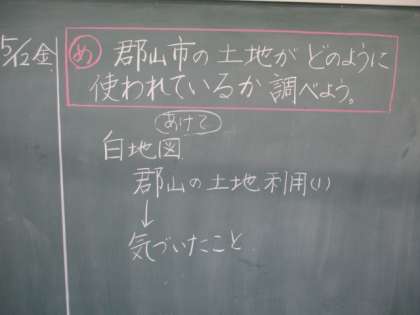 5/12金
め 郡山市の土地がどのように
使われているか調べよう。
あけて
白地図
郡山の土地利用(1)
↓
気づいたこと